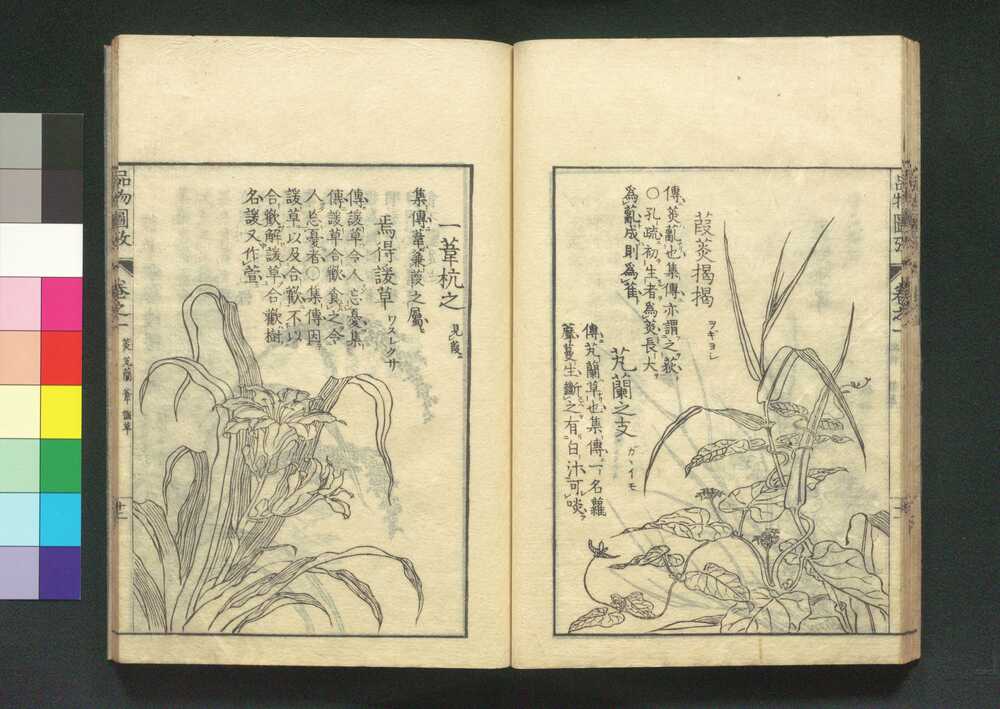 葭菼揭揭
ヲギヨシ
傳菼亂也集傳亦謂之荻
○孔疏初生者為菼長大
為亂成則為萑
芄蘭之支
ガヾイモ
傳芄蘭草也集傳一名蘿
蔓生斷之有白汁可啖
品物圖攷
卷之一
一葦杭之
見葭
集傳葦蒹葭之屬
焉得諼草
ワスレクサ
傳諼草令人忘憂集
傳諼草合歡食之令
人忘憂者○集傳因
諼草以及合歡不以
合歡解諼草合歡樹
名諼又作萱
品物圖攷
卷之一